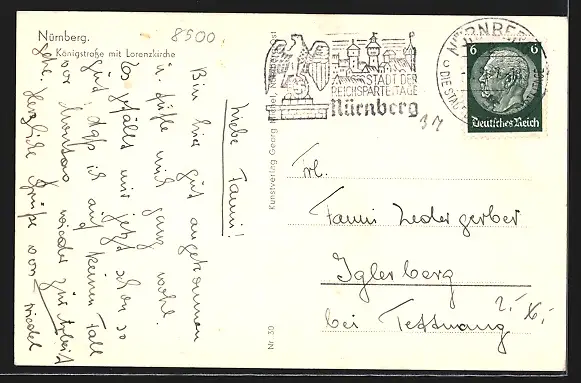 Nürnberg.
Königstraße mit Lorenzkirche
8500
Liebe Fanni!
Bin hier gut angekommen
u. fühle mich ganz wohl.
Es gefällt mir jetzt schon so
gut, daß ich auf keinen Fall
vor Montag wieder zur Arbeit
gehe. Herzliche Grüße von
Kunstverlag Georg Nürnberg-Ost
Nr 30
STADT DER
REICHSPARTEITAGE
Nürnberg
NÜRNBERG
6 6
Deutsches Reich
37
Frl.
Fanni Ledergerber
Iglerberg
bei Tettnang
2.-